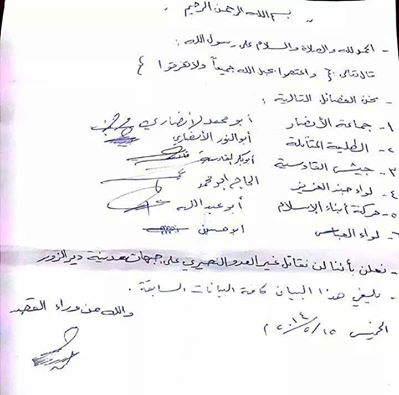 بسم الله الرحمن الرحيم
- الحمد لله والصلاة والسلام على رسول الله :
قال تعالى : { واعتصموا بحبل الله جميعاً ولا تفرقوا }
- نحن الفصائل التالية :
١- جماعة الأنصار أبو محمد الأنصاري
٢- الطليعة المقاتلة أبو النور الأنصاري
٣- جيش القادسية أبو بكر القادسية
٤- لواء جند العزيز الحاج أبو محمد
٥- حركة أبناء الإسلام أبو عبد الله
٦- لواء العباس أبو حسين
- نعلن بأننا لن نقاتل غير العدو النصيري على جبهات مدينة دير الزور
- يلغي هذا البيان كافة البيانات السابقة .
والله من وراء القصد
الخميس ٢٠١٤/٥/١٥